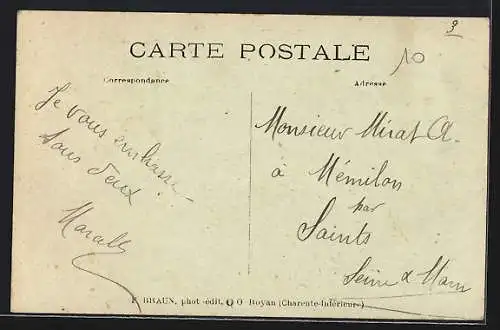 3
10
CARTE POSTALE
Correspondance
Adresse
Je vous embrasse
tous deux
Monsieur Mirat A.
à Mémilon
par
Saints
Seine & Marn
F. BRAUN, phot-édit, Royan (Charente-Inférieure)